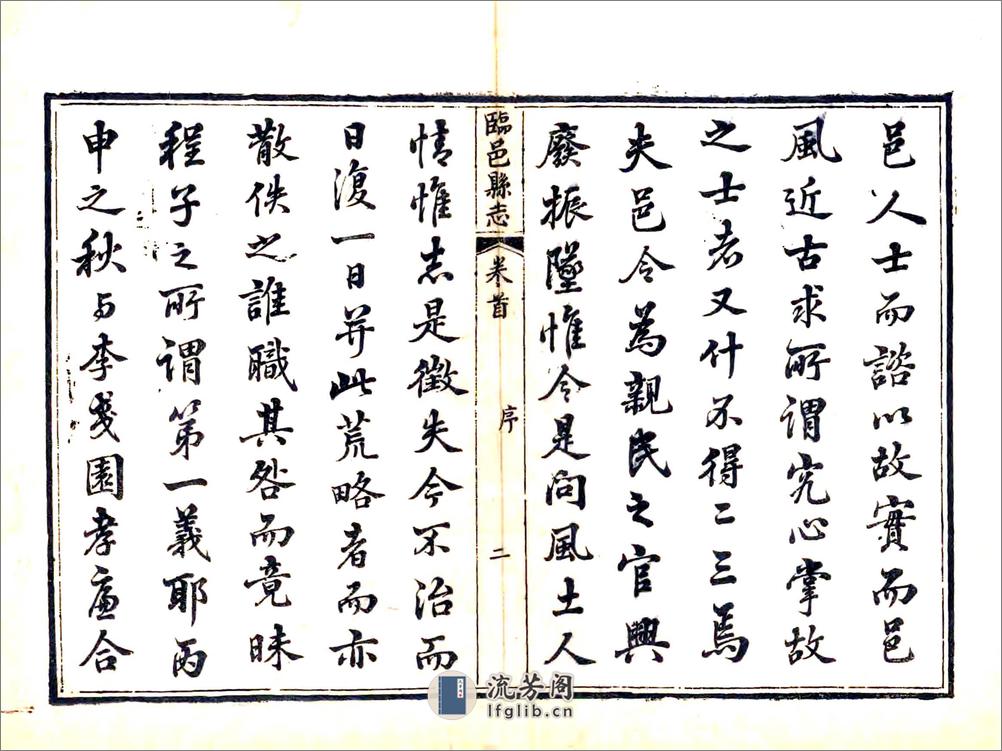 邑人士而諮以故實而邑
風近古求所謂究心掌故
之士者又什不得二三焉
夫邑令爲親民之官興
廢振墜惟令是問風土人
臨邑縣志
卷首
序
二
情惟志是徵失今不治而
日復一日并此荒略者而亦
散佚之誰職其咎而竟昧
程子之所謂第一義耶丙
申之秋与李戔園孝廉合
流芳阁
lfglib.cn